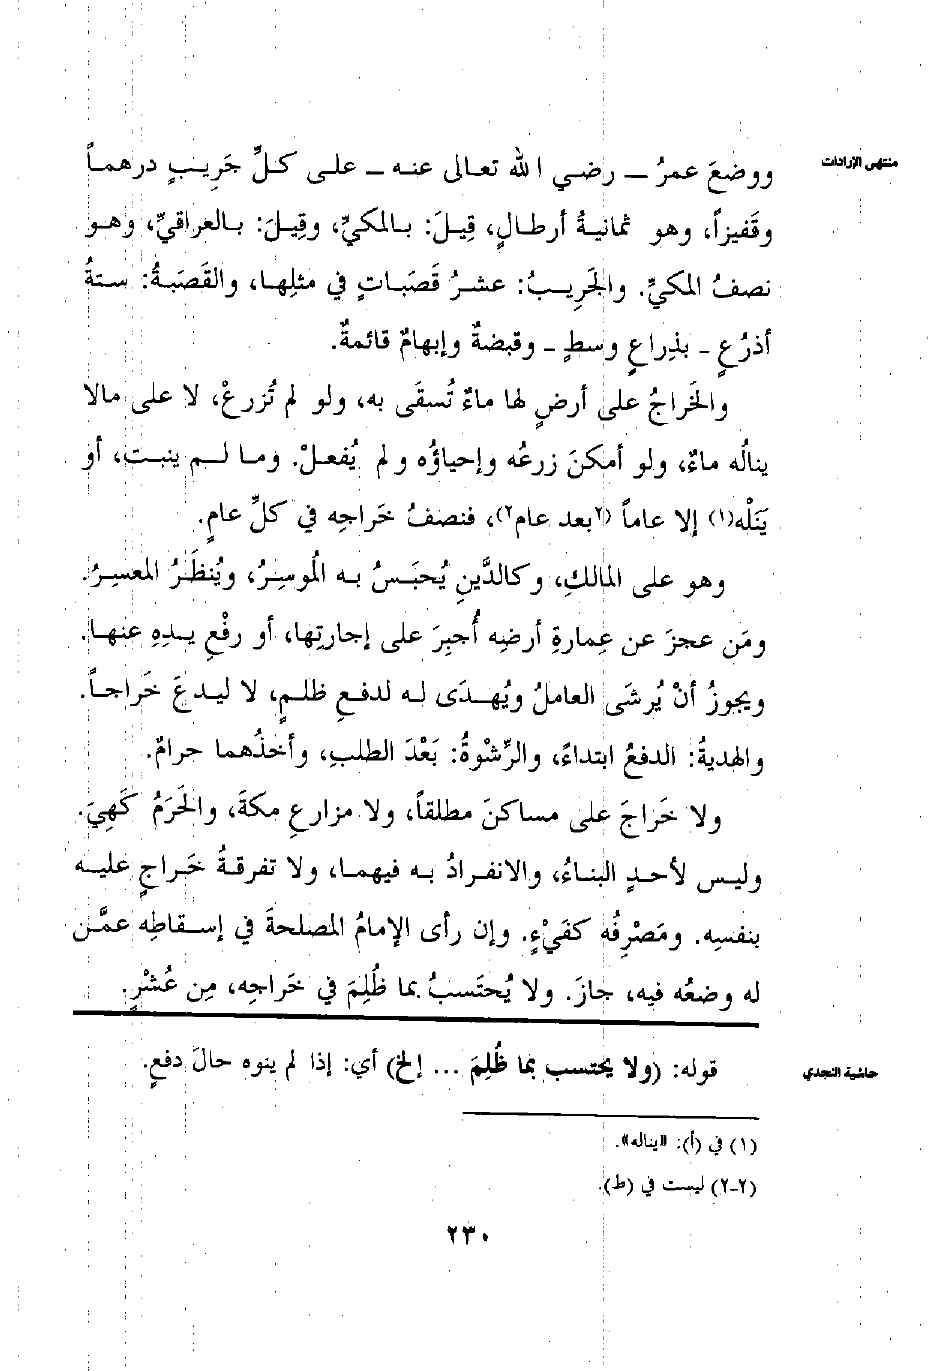 منتهى الإرادات
ووضعَ عمرُ ــ رضي الله تعالى عنه ــ على كلِّ جَريبٍ درهماً
وقَفيزاً، وهو ثمانيةُ أرطالٍ، قِيلَ: بالمكيِّ، وقِيلَ: بالعراقيِّ، وهو
نصفُ المكيِّ. والجَرِيبُ: عشرُ قَصَباتٍ في مثلِها، والقَصَبَةُ: ستةُ
أذرُعٍ ـ بذِراعٍ وسطٍ ـ وقبضةٌ وإبهامٌ قائمةٌ.
والخَراجُ على أرضٍ لها ماءٌ تُسقَى به، ولو لم تُزرعْ، لا على مالا
ينالُه ماءٌ، ولو أمكنَ زرعُه وإحياؤُه ولم يُفعلْ. وما لم ينبت، أو
يَنَلْه(١) إلا عاماً (٢بعد عام٢)، فنصفُ خَراجِه في كلِّ عامٍ.
وهو على المالكِ، وكالدَّينِ يُحبَسُ به المُوسِرُ، ويُنظَرُ المعسِرُ.
ومَن عجزَ عن عِمارةِ أرضِه أُجبِرَ على إجارتِها، أو رفْعِ يدِهِ عنها.
ويجوزُ أنْ يُرشَى العاملُ ويُهدَى له لدفعِ ظلمٍ، لا ليدعَ خَراجاً.
والهديةُ: الدفعُ ابتداءً، والرِّشْوةُ: بَعْدَ الطلبِ، وأخذُهما حرامٌ.
ولا خَراجَ على مساكنَ مطلقاً، ولا مزارعِ مكةَ، والحَرَمُ كَهِيَ.
وليس لأحدٍ البناءُ، والانفرادُ به فيهما، ولا تفرقةُ خَراجٍ عليه
بنفسِه. ومَصْرِفُه كفَيْءٍ. وإن رأى الإمامُ المصلحةَ في إسقاطِه عمَّن
له وضعُه فيه، جازَ. ولا يُحتَسبُ بما ظُلِمَ في خَراجِه، مِن عُشْرٍ.
حاشية النجدي
قوله: (ولا يحتسب بما ظُلِمَ ... إلخ) أي: إذا لم ينوه حالَ دفعٍ.
(١) في (أ): «يناله».
(٢-٢) ليست في (ط).
٢٣٠